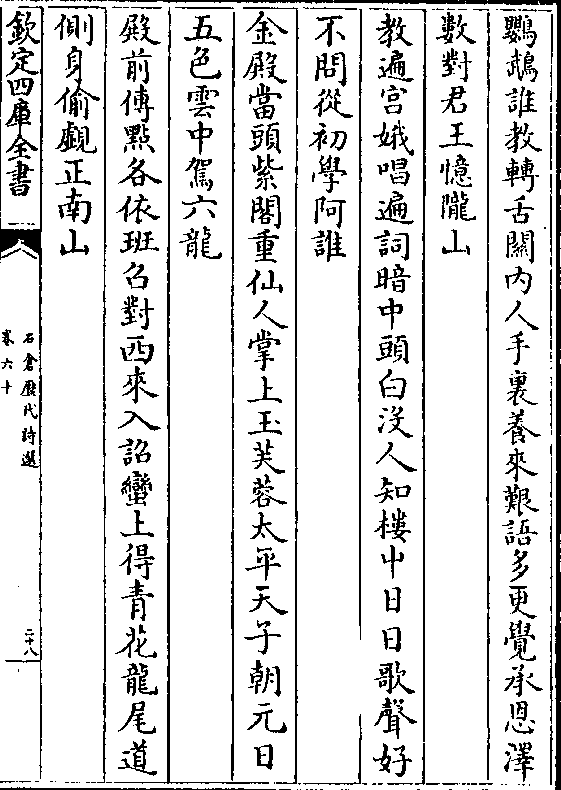 鸚鵡誰教轉舌關内人手裏養來艱語多更覺承恩澤
數對君王憶隴山
教遍宫娥唱遍詞暗中頭白沒人知樓中日日歌聲好
不問從初學阿誰
金殿當頭紫閣重仙人掌上玉芙蓉太平天子朝元日
五色雲中駕六龍
殿前傳點各依班召對西來入詔蠻上得青花龍尾道
側身偷覷正南山
欽定四庫全書
石倉歷代詩選
卷六十
二十八